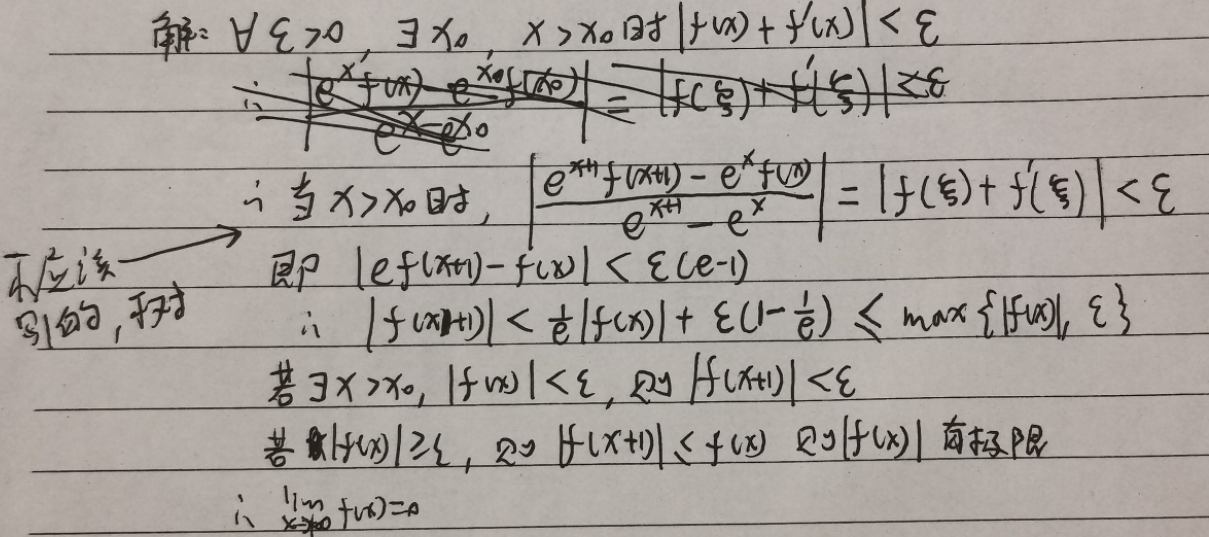 解: ∀ε>0, ∃x₀, x>x₀时 |f(x)+f'(x)|<ε
∴ |(eˣf(x)-eˣ⁰f(x₀))/(eˣ-eˣ⁰)| = |f(ξ)+f'(ξ)|<ε
∴ 当x>x₀时, |(eˣ⁺¹f(x+1)-eˣf(x))/(eˣ⁺¹-eˣ)| = |f(ξ)+f'(ξ)|<ε
不应该
写的, 抄
即 |ef(x+1)-f(x)|<ε(e-1)
∴ |f(x+1)|<1/e|f(x)|+ε(1-1/e) ≤ max{|f(x)|, ε}
若∃x>x₀, |f(x)|<ε, 则|f(x+1)|<ε
若|f(x)|≥ε, 则|f(x+1)|≤f(x) 则|f(x)| 有极限
∴ lim x→∞ f(x)=0